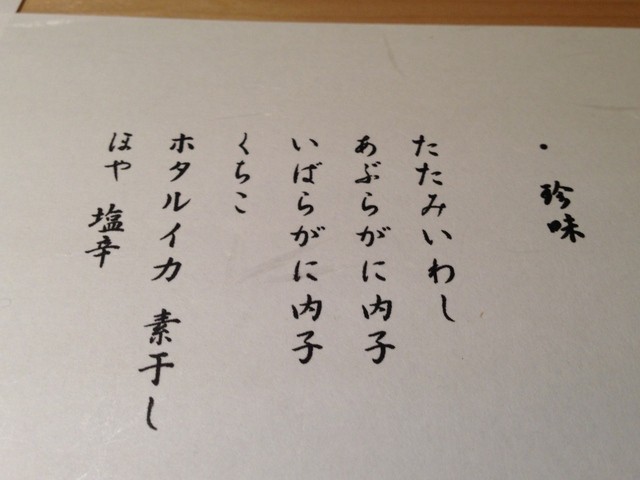 ・珍味
たたみいわし
あぶらがに内子
いばらがに内子
くちこ
ホタルイカ 素干し
ほや 塩辛